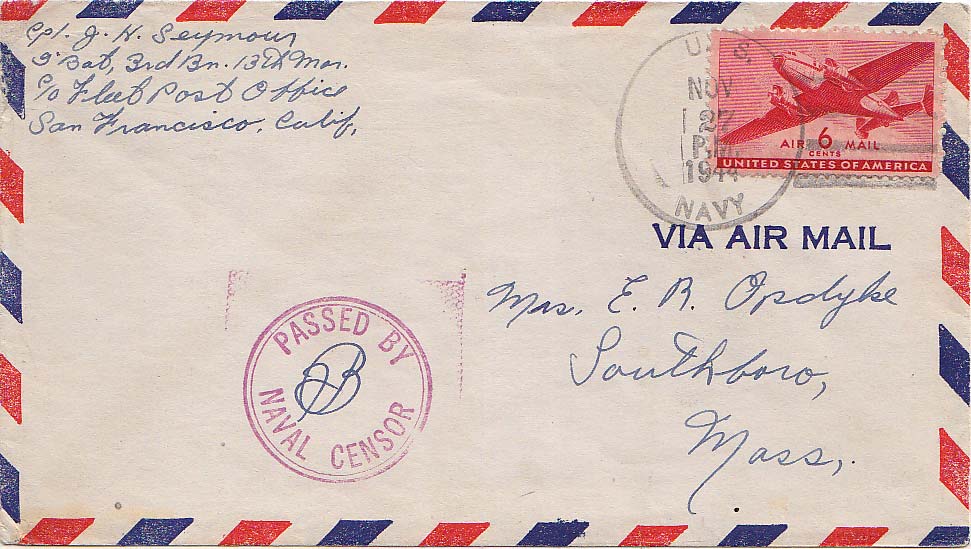 Cpl. J. H. Seymour
S Bat, 3rd Bn. 13th Mar.
c/o Fleet Post Office
San Francisco, Calif,
U.S.
NOV
27
P.M.
1944
NAVY
AIR 6 MAIL
CENTS
UNITED STATES OF AMERICA
VIA AIR MAIL
Mrs. E. R. Opdyke
Southboro,
Mass,.
PASSED BY
NAVAL CENSOR